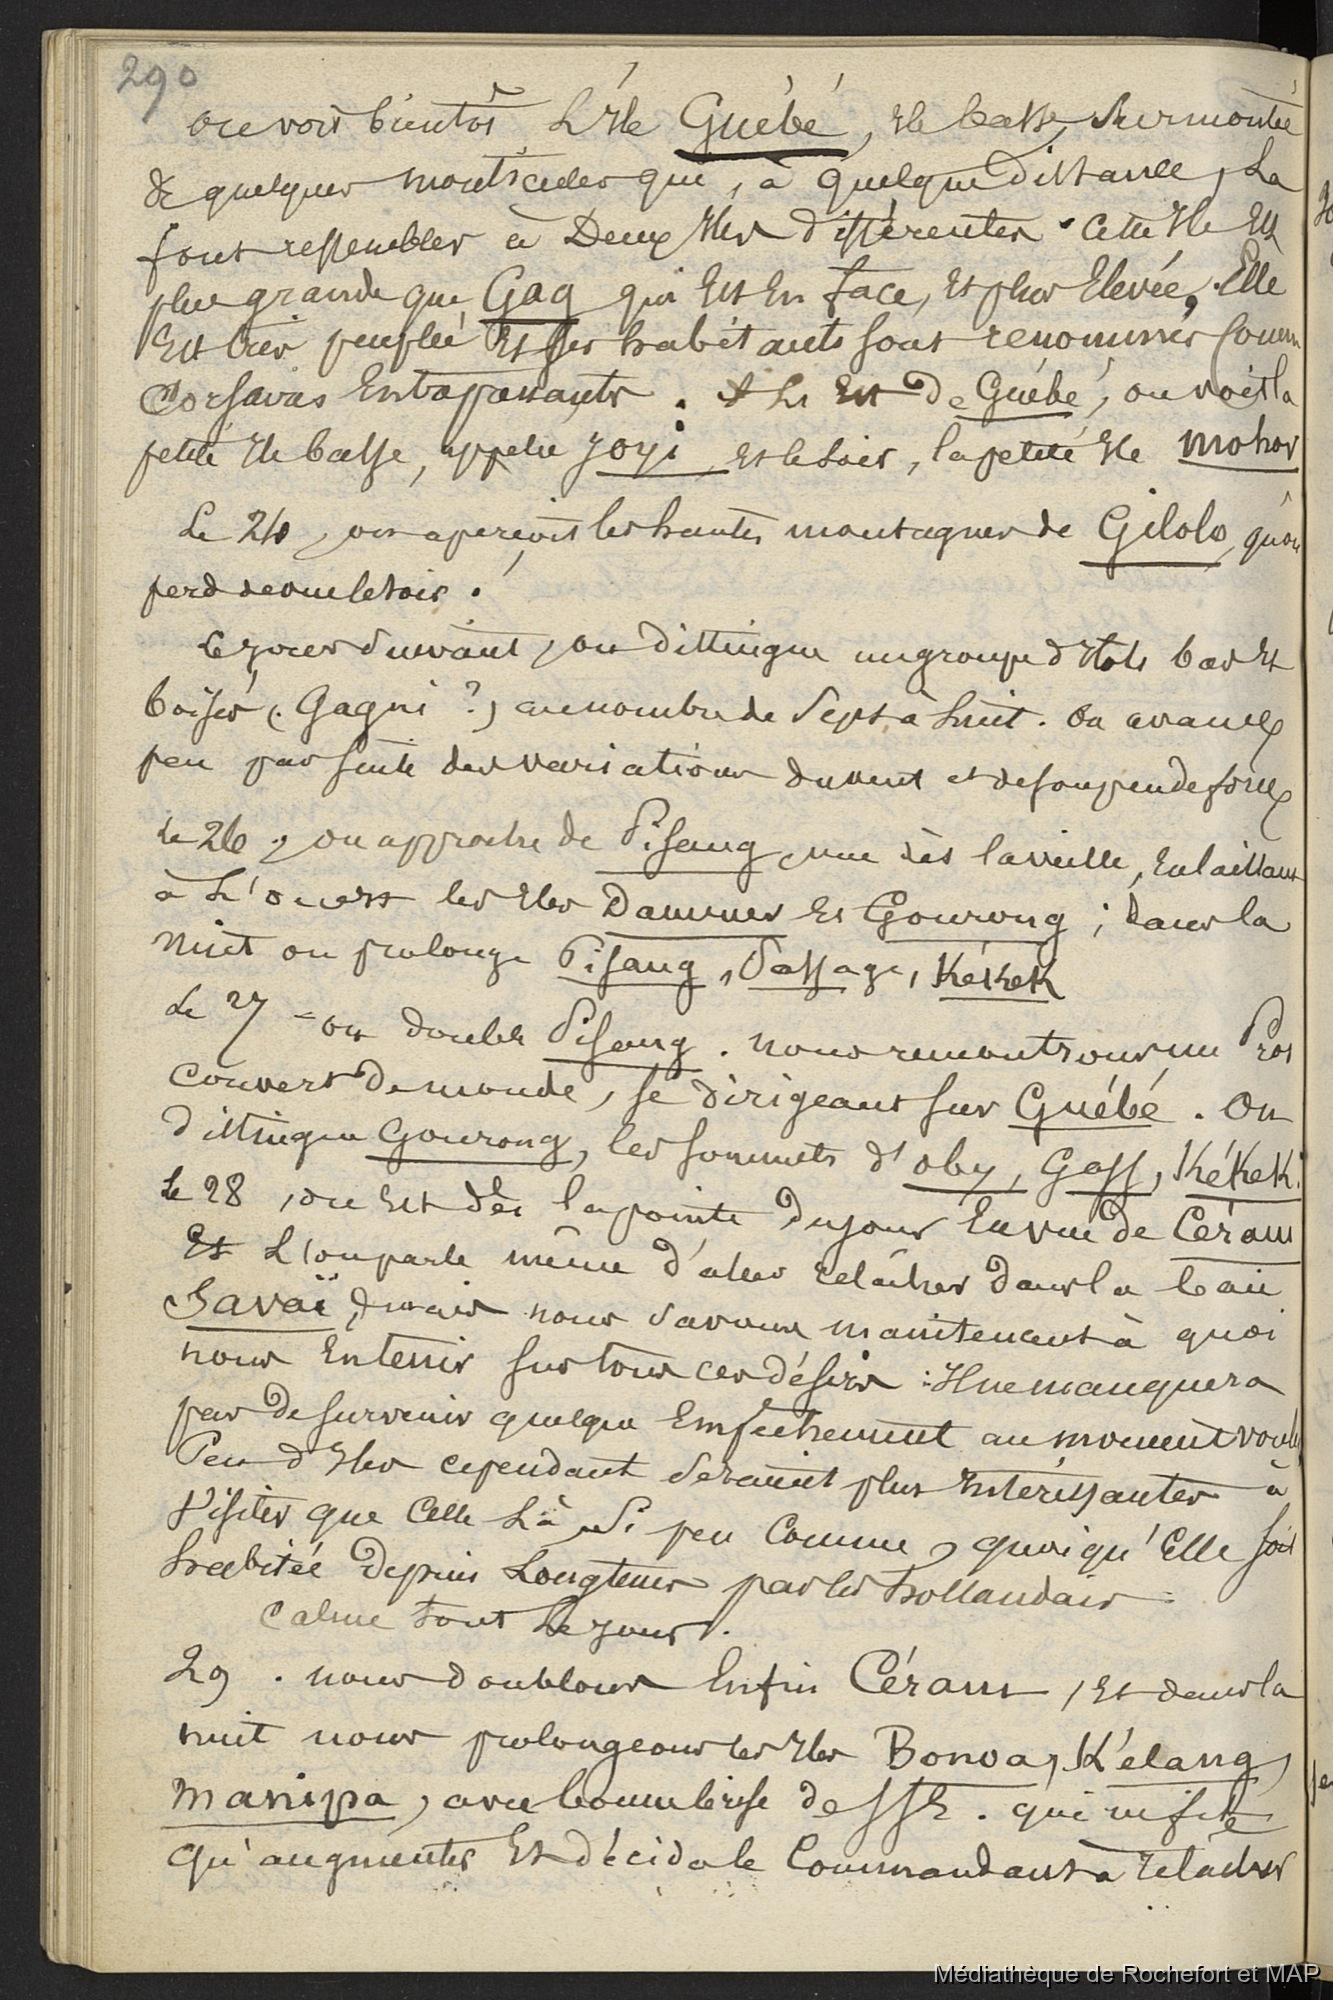 290
on voit bientôt L'Ile Guébé, Ile basse, surmontée
de quelques monticules qui, à quelque distance, La
font ressembler à Deux Iles différentes. Cette Ile Est
plus grande que Gag qui Est En face, Et plus Elevée, Elle
Est bien peuplée Et ses habitants sont renommés Comme
Corsaires Entreprenants. à L'Est De Guébé, on voit la
petite Ile basse, appelée Joyi Et le soir, la petite Ile mohor
Le 24, on aperçoit les hautes montagnes de Gilolo, qu'on
perd de vue le soir.
Le jour suivant, on distingue un groupe d'Ilots bas Et
boisés (Gagni ?) au nombre de Sept à huit. On avance
peu par suite des variations du vent et de son peu de force
Le 26, on approche de Pisang, vue dès la veille, En laissant
à L'ouest les Iles Dammer Et Gourong ; dans la
nuit on prolonge Pisang, Passage, Kékek
Le 27 - on double Pisang. nous rencontrons un Pros
couvert De monde, se dirigeant sur Guébé. On
Distingue Gourong, les sommets d'oby, Gass, Kékek.
Le 28, on Est dès la pointe Du jour En vue de Céram
Et L'on parle même d'aller relâcher Dans la baie
Savaï, mais nous savons maintenant à quoi
nous En tenir sur tous ces désirs : Il ne manquera
pas De survenir quelque Empêchement au moment voulu
Peu d'Iles cependant seraient plus Intéressantes à
Visiter que Celle Là, si peu Connue, quoiqu'Elle soit
habitée Depuis Longtems par les hollandais.
Calme tout Le jour.
29. nous doublons Enfin Céram, Et dans la
nuit nous prolongeons les Iles Bonoa, Kélang,
manipa, avec bonne brise de SSE. qui ne fit
qu'augmenter Et décida le Commandant à relâcher
Médiathèque de Rochefort et MAP